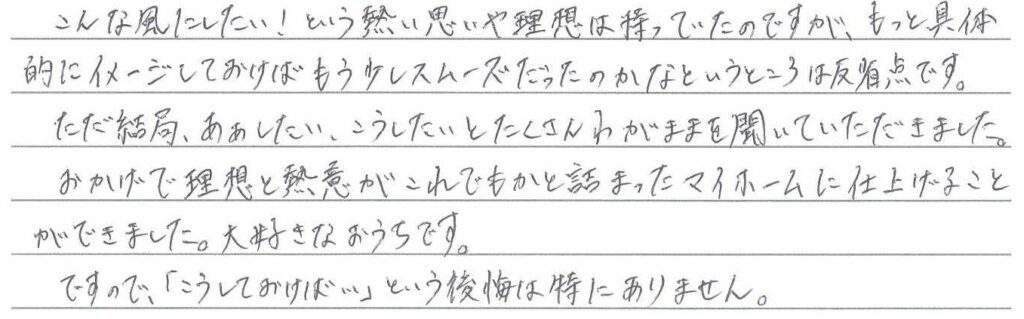 こんな風にしたい！という熱い思いや理想は持っていたのですが、もっと具体
的にイメージしておけばもう少しスムーズだったのかなというところは反省点です。
ただ結局、あぁしたい、こうしたいとたくさんわがままを聞いていただきました。
おかげで理想と熱意がこれでもかと詰まったマイホームに仕上げること
ができました。大好きなおうちです。
ですので、「こうしておけば…」という後悔は特にありません。